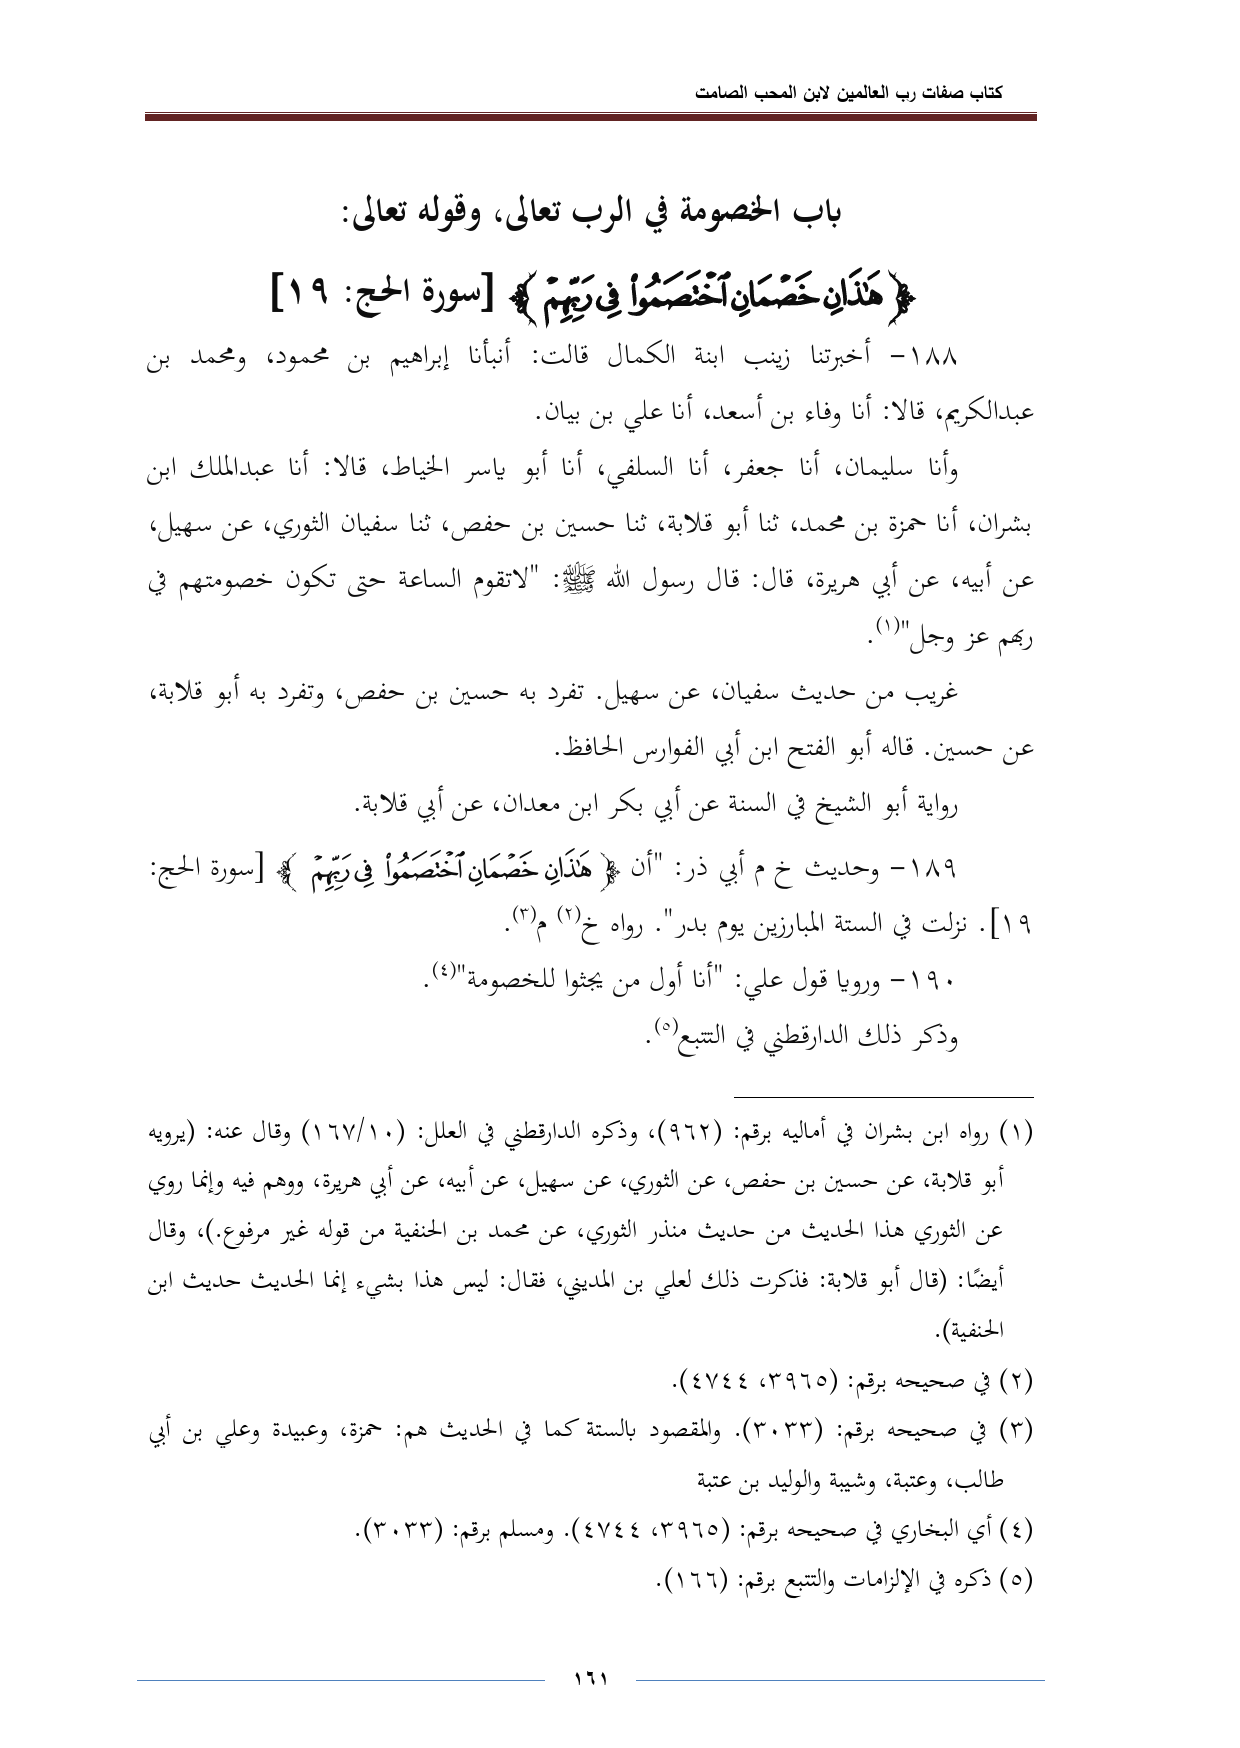 كتاب صفات رب العالمين لابن المحب الصامت
باب الخصومة في الرب تعالى، وقوله تعالى:
﴿هَٰذَانِ خَصۡمَانِ ٱخۡتَصَمُواْ فِي رَبِّهِمۡ﴾ [سورة الحج: ١٩]
١٨٨- أخبرتنا زينب ابنة الكمال قالت: أنبأنا إبراهيم بن محمود، ومحمد بن
عبدالكريم، قالا: أنا وفاء بن أسعد، أنا علي بن بيان.
وأنا سليمان، أنا جعفر، أنا السلفي، أنا أبو ياسر الخياط، قالا: أنا عبدالملك ابن
بشران، أنا حمزة بن محمد، ثنا أبو قلابة، ثنا حسين بن حفص، ثنا سفيان الثوري، عن سهيل،
عن أبيه، عن أبي هريرة، قال: قال رسول الله ﷺ: "لاتقوم الساعة حتى تكون خصومتهم في
ربهم عز وجل"(١).
غريب من حديث سفيان، عن سهيل. تفرد به حسين بن حفص، وتفرد به أبو قلابة،
عن حسين. قاله أبو الفتح ابن أبي الفوارس الحافظ.
رواية أبو الشيخ في السنة عن أبي بكر ابن معدان، عن أبي قلابة.
١٨٩- وحديث خ م أبي ذر: "أن ﴿هَٰذَانِ خَصۡمَانِ ٱخۡتَصَمُواْ فِي رَبِّهِمۡ﴾ [سورة الحج:
١٩]. نزلت في الستة المبارزين يوم بدر". رواه خ(٢) م(٣).
١٩٠- ورويا قول علي: "أنا أول من يجثوا للخصومة"(٤).
وذكر ذلك الدارقطني في التتبع(٥).
(١) رواه ابن بشران في أماليه برقم: (٩٦٢)، وذكره الدارقطني في العلل: (١٦٧/١٠) وقال عنه: (يرويه
أبو قلابة، عن حسين بن حفص، عن الثوري، عن سهيل، عن أبيه، عن أبي هريرة، ووهم فيه وإنما روي
عن الثوري هذا الحديث من حديث منذر الثوري، عن محمد بن الحنفية من قوله غير مرفوع.)، وقال
أيضًا: (قال أبو قلابة: فذكرت ذلك لعلي بن المديني، فقال: ليس هذا بشيء إنما الحديث حديث ابن
الحنفية).
(٢) في صحيحه برقم: (٣٩٦٥، ٤٧٤٤).
(٣) في صحيحه برقم: (٣٠٣٣). والمقصود بالستة كما في الحديث هم: حمزة، وعبيدة وعلي بن أبي
طالب، وعتبة، وشيبة والوليد بن عتبة
(٤) أي البخاري في صحيحه برقم: (٣٩٦٥، ٤٧٤٤). ومسلم برقم: (٣٠٣٣).
(٥) ذكره في الإلزامات والتتبع برقم: (١٦٦).
١٦١